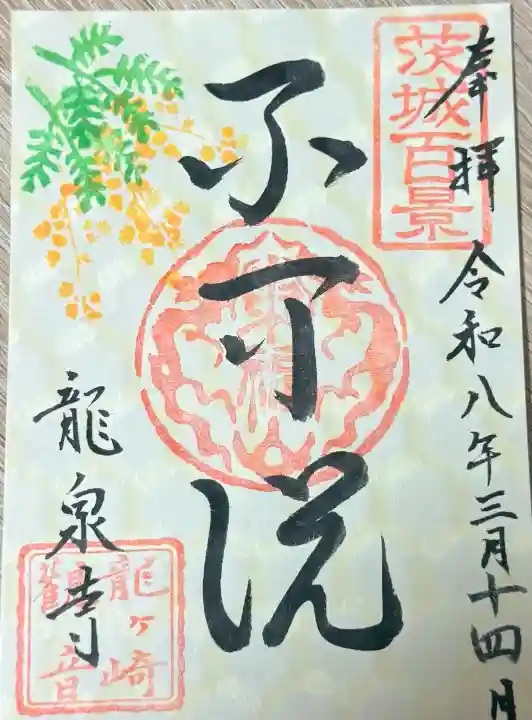 奉拝
茨城百景
令和八年三月十四日
不可説
龍泉寺
龍ヶ崎
観音